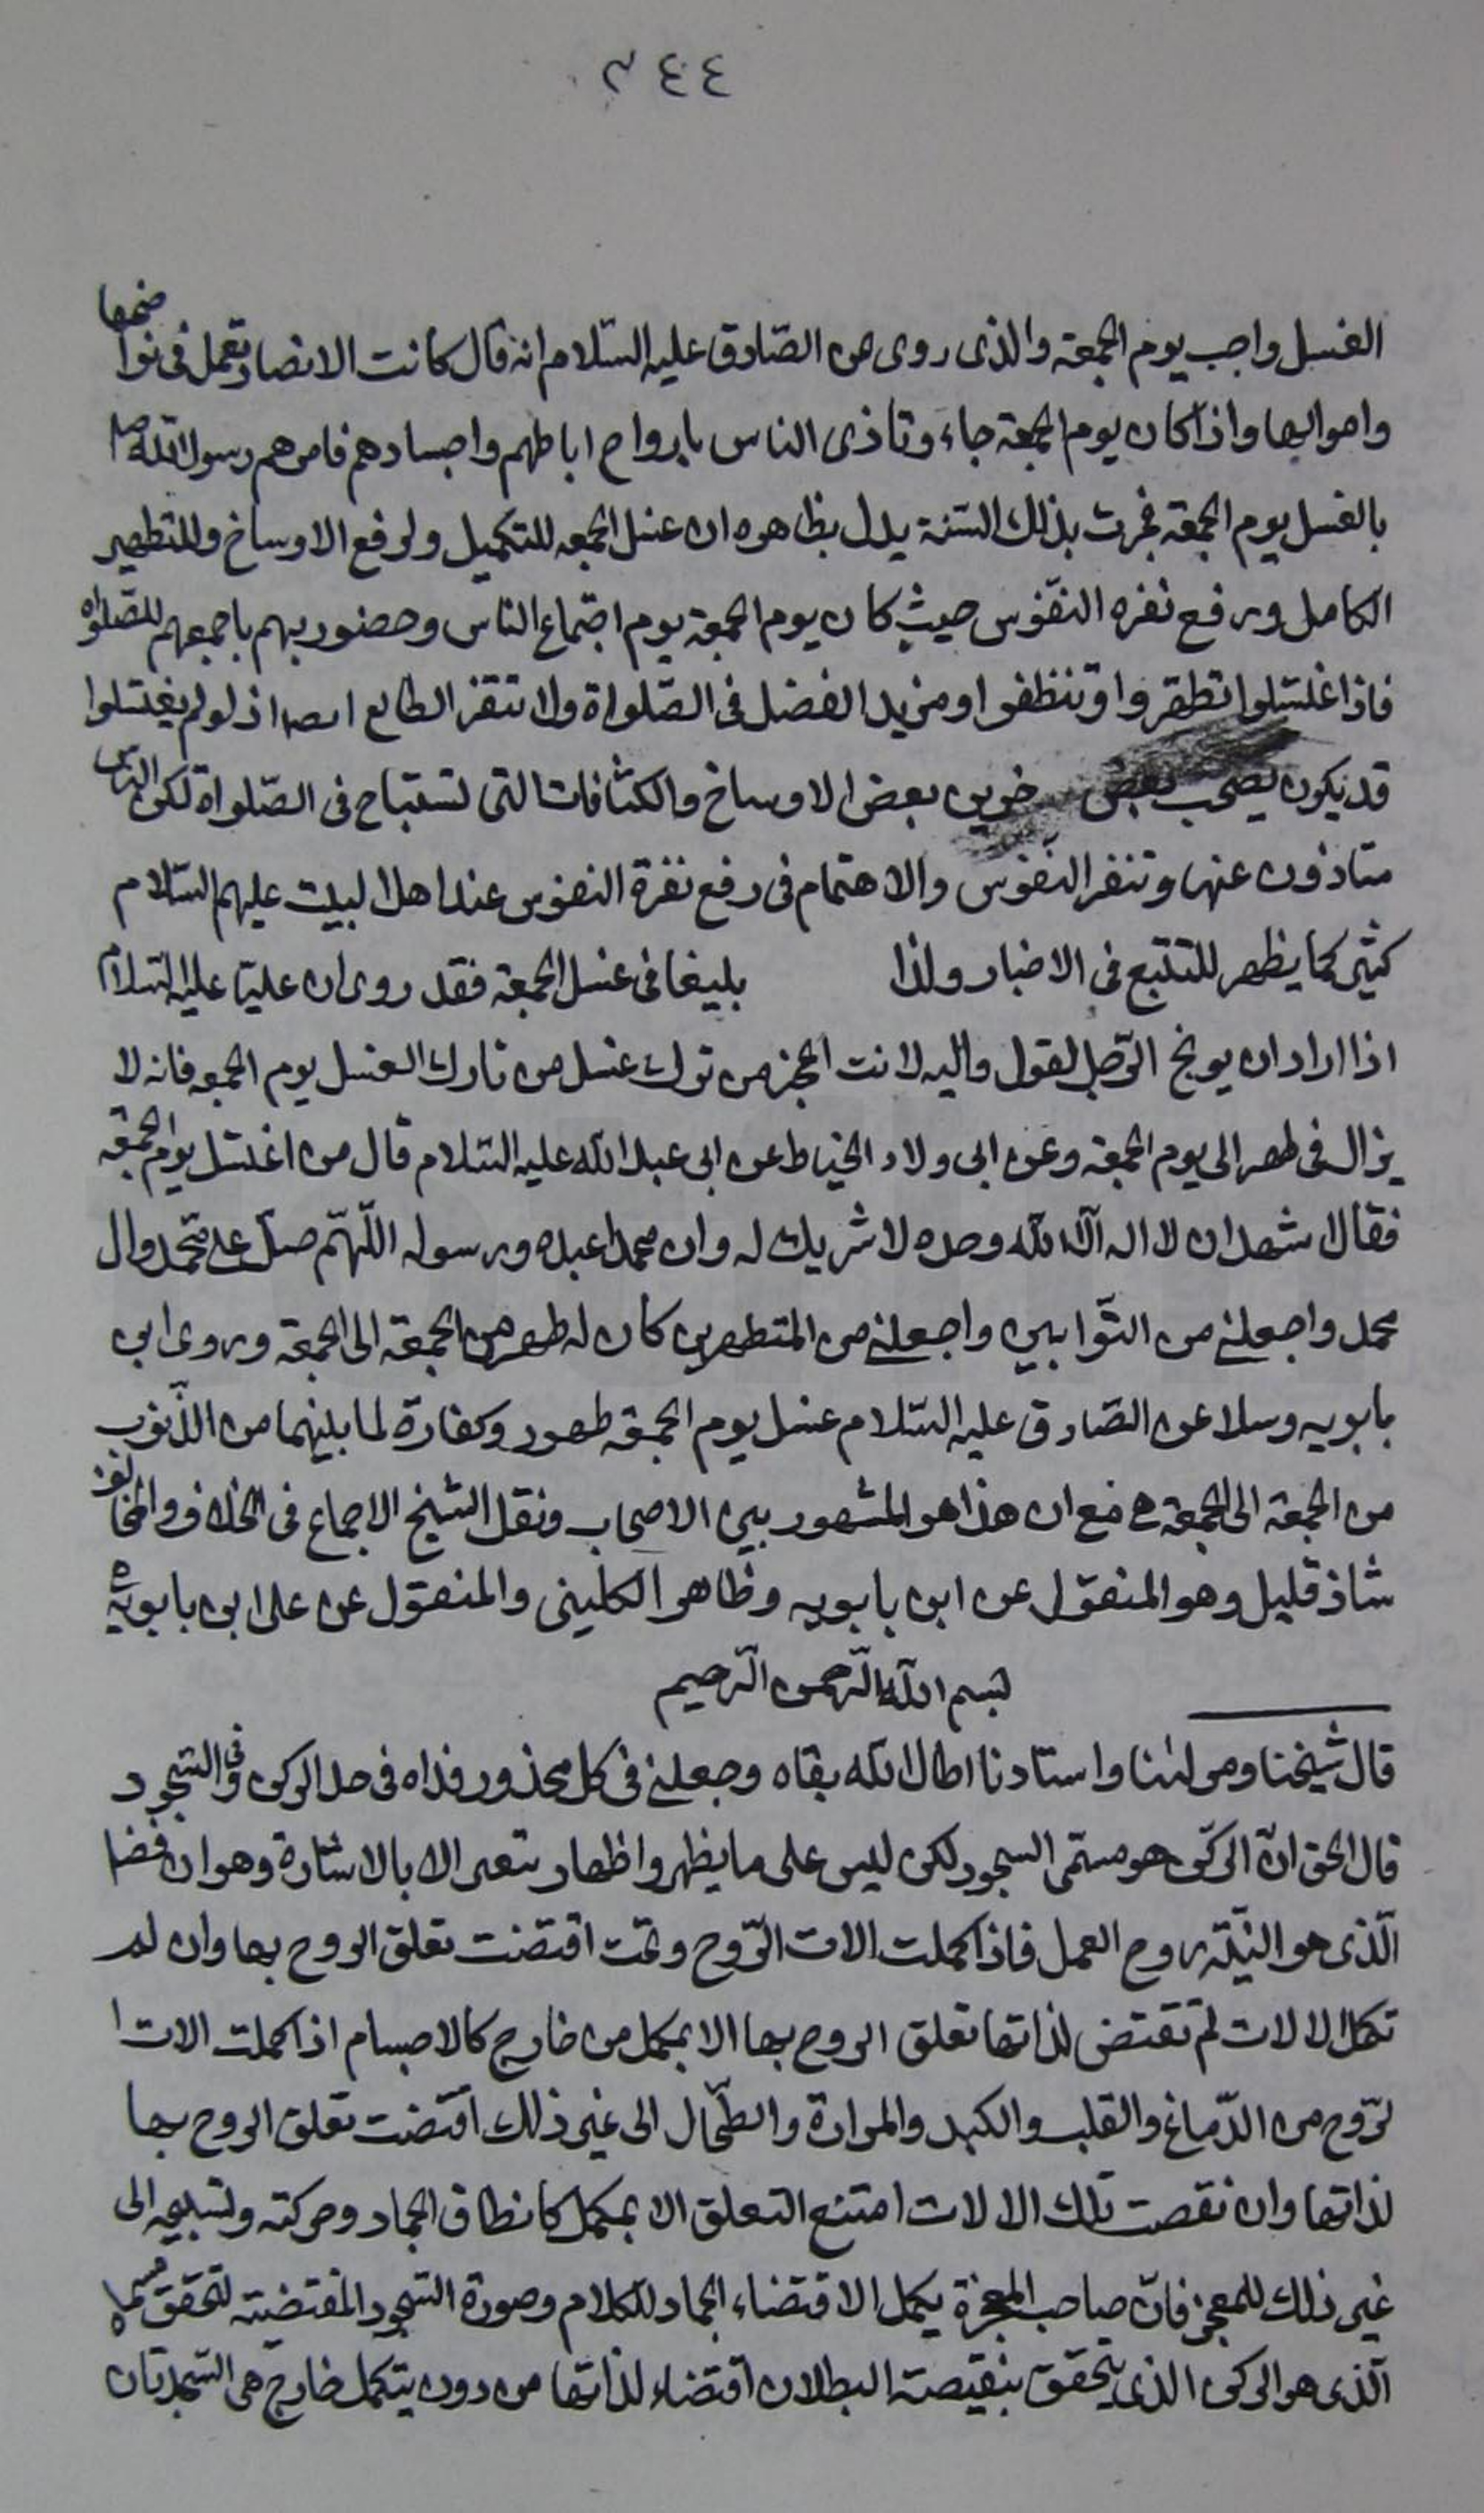 ٣٤٤
الغسل واجب يوم الجمعة والذى روى عن الصّادق عليه السّلام انه قال كانت الانصار تعمل فى نواضحها
واموالها واذا كان يوم الجمعة جاءوتاذى الناس بارواح اباطهم واجسادهم فامرهم رسول الله ص
بالغسل يوم الجمعة فجرت بذلك السّنة يدل بظاهره ان غسل الجمعه للتكميل ولرفع الاوساخ وللتطهير
الكامل ورفع نفره النفّوس حيث كان يوم الجمعة يوم اجتماع النّاس وحضور بهم باجمعهم للصّلواة
فاذا غلتسلوا تطهروا وتنظفوا ومزيد الفضل فى الصّلواة ولا تتقز الطالع اذ لو لم يغتسلوا
قد يكون يصحب بعض بعض الاوساخ والكثافات التى تستباح فى الصّلواة لكن النّاس
متاذون عنها وتنفر النّفوس والاهتمام فى رفع نفرة النفوس عند اهل البيت عليهم السّلام
كثير كما يظهر للتتبع فى الاخبار ولذا بليغا فى غسل الجمعة فقد روى ان عليّا عليه السّلام
اذا اراد ان يوبخ الرّجل لقول واليه لانت اعجز من ترك غسل من تارك الغسل يوم الجمعه فانه لا
يزال فى طهر الى يوم الجمعة وعن ابى ولاد الخياط عن ابى عبد الله عليه السّلام قال من اغتسل يوم الجمعة
فقال اشهد ان لا اله الّا الله وحده لا شريك له وان محمدا عبده ورسوله اللّهمّ صلّ على محمّد وال
محمد واجعلنى من التوّابين واجعلنى من المتطهرين كان له طهر من الجمعة الى الجمعة وروى ابن
بابويه وسلا عن الصّادق عليه السّلام غسل يوم الجمعة طهور وكفارة لما بينهما من الذّنوب
من الجمعة الى الجمعة مع ان هذا هو المشهور بين الاصحاب ونقل الشيخ الاجماع فى الخلاف والمخالف
شاذ قليل وهو المنقول عن ابن بابويه وظاهر الكلينى والمنقول عن على ابن بابويه
بسم الله الرّحمن الرّحيم
قال شيخنا ومولٰينا واستادنا اطال الله بقاه وجعلنى فى كل محذور فداه فى حد الركن وفى السّجود
قال الحق انّ الركّن هو مسمّى السجود لكن ليس على ما يظهر واظهار الا بالاشارة وهو ان
الّذى هو النيّة روح العمل فاذا كملت الات الرّوح وتمت اقتضت تعلق الروح بها وان لم
تكمل الالات لم تقتضى لذاتها تعلق الروح بها الا بمكمل من خارج كالاجسام اذا كملت الات ا
لرّوح من الدّماغ والقلب والكبد والمرارة والطّحال الى غير ذلك اقتضت تعلق الروح بها
لذاتها وان نقصت تلك الالات امتنع التعلق الا بمكمل كانطاق الجماد وحركته وتسبيحه الى
غير ذلك للمعجز فانّ صاحب المعجزة يكمل الاقتضاء الجماد للكلام وصورة السّجود المقتضية لتحقق مسمّاه
الّذى هو الركن الذى يتحقق بنقيصته البطلان اقتضاء لذاتها من دون يتكمل خارج هى السّجدتان